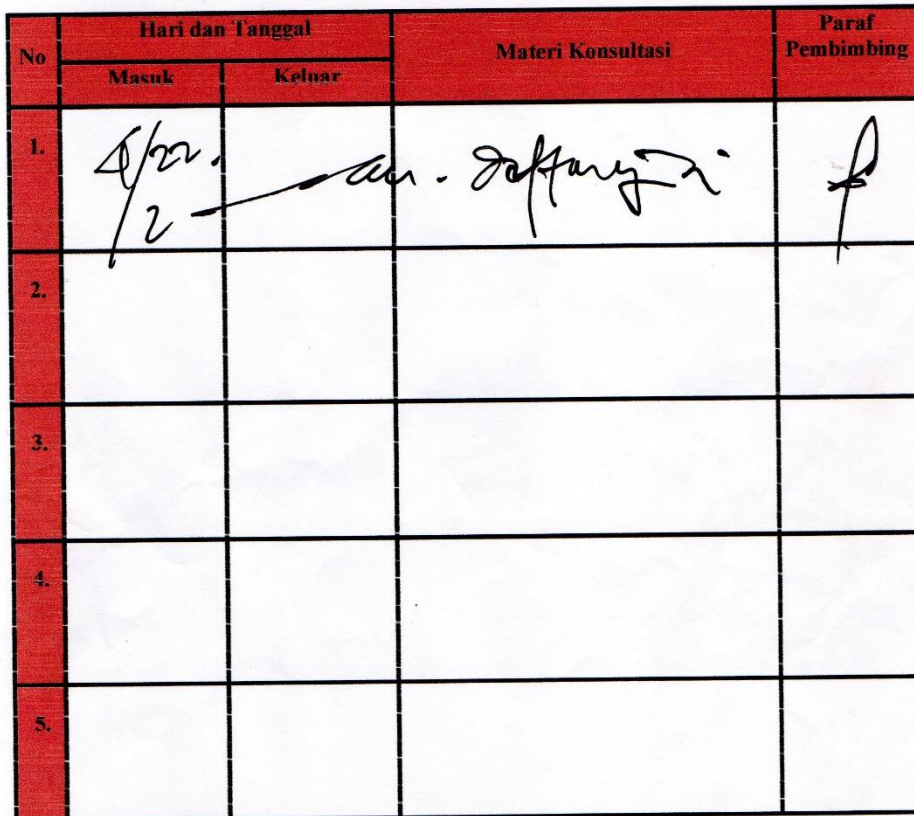 No
Hari dan Tanggal
Materi Konsultasi
Paraf
Pembimbing
Masuk
Keluar
1.
/22.
2
2.
3.
4.
5.